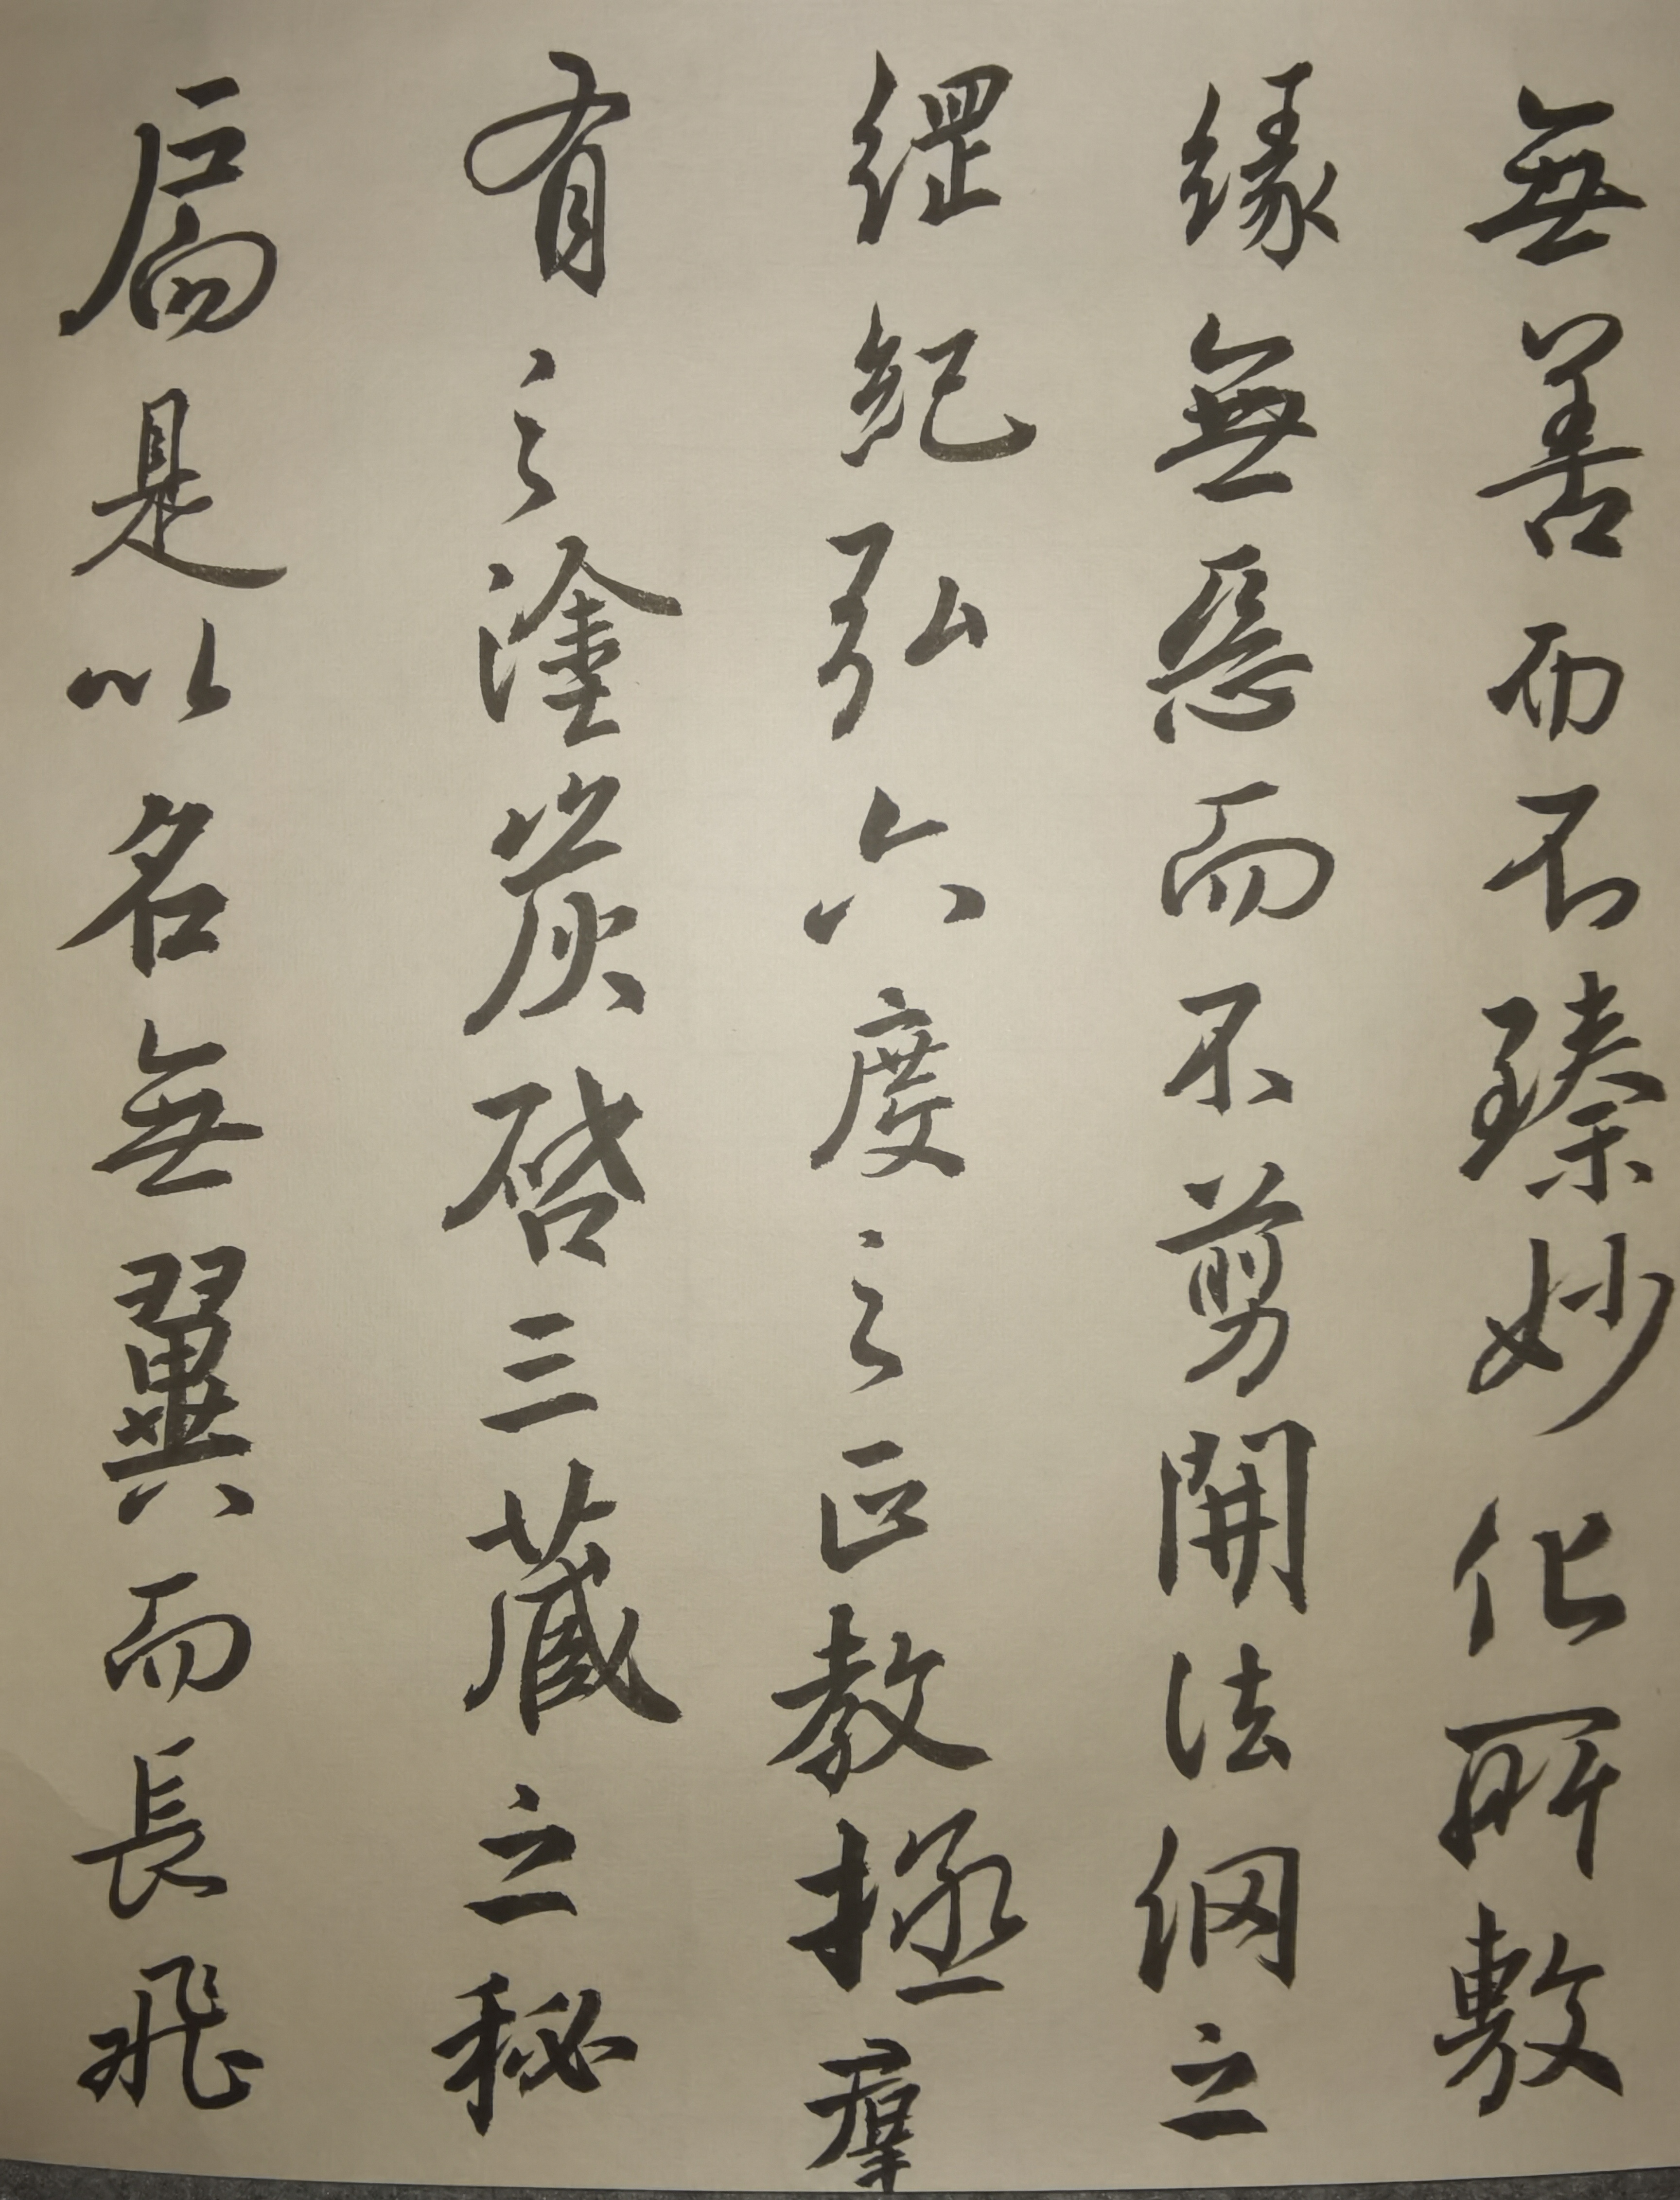 無善而不臻妙化所敷
緣無惡而不剪開法網之
綱紀弘六度之正教拯群
有之塗炭啓三藏之秘
扃是以名無翼而長飛